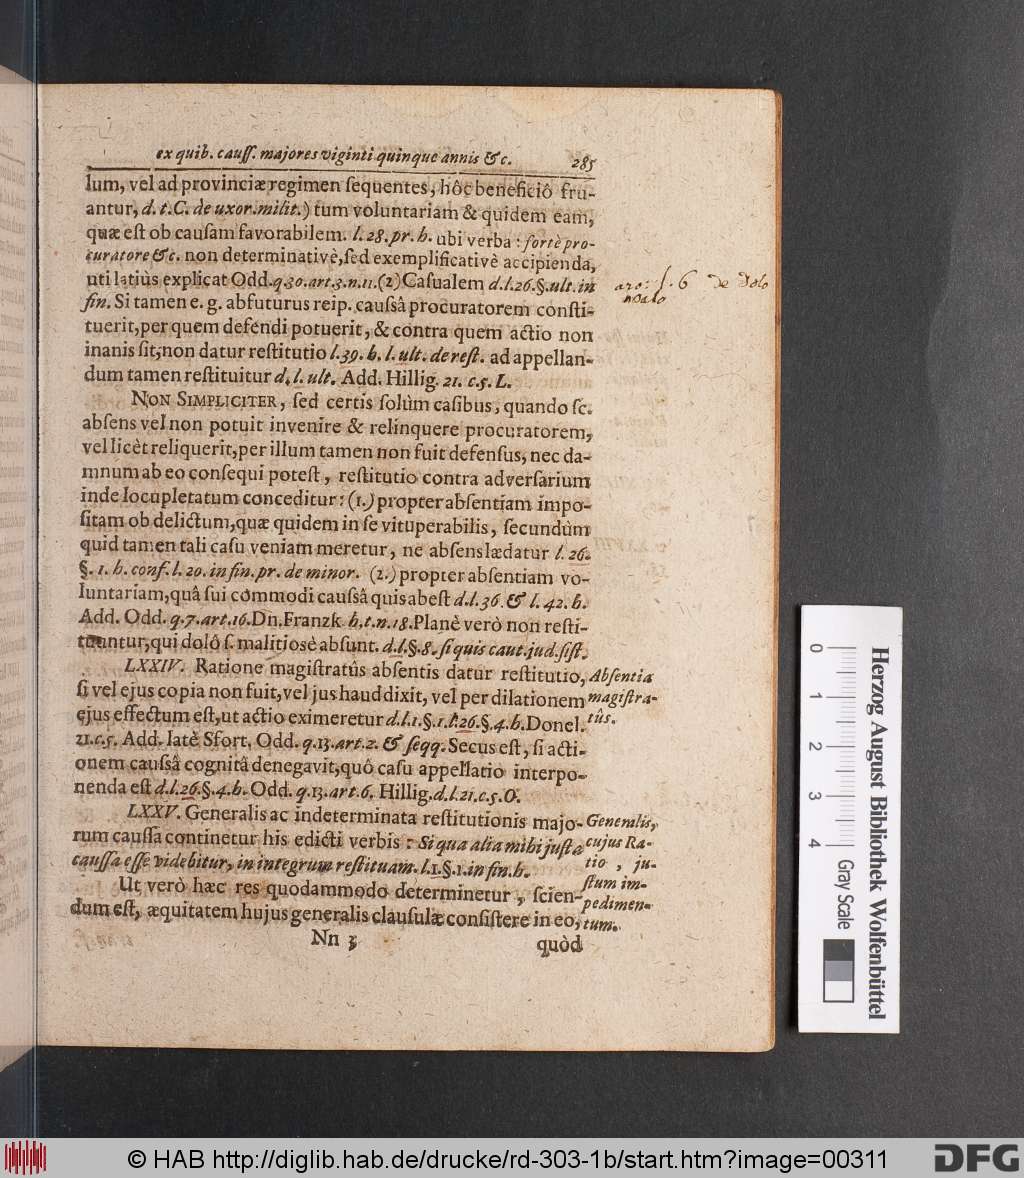 ex quib. cauſſ. majores viginti quinque annis &c. 285
lum, vel ad provinciæ regimen ſequentes, hôc beneficiô fru-
antur, d. t. C. de uxor. milit.) tum voluntariam & quidem eam,
quæ eſt ob cauſam favorabilem. l. 28. pr. h. ubi verba : fortè pro-
curatore &c. non determinativè, ſed exemplificativè accipienda,
uti latiùs explicat Odd. q. 30. art. 3. n. 11. (2) Caſualem d. l. 26. §. ult. in
fin. Si tamen e. g. abfuturus reip. cauſſâ procuratorem conſti-
tuerit, per quem defendi potuerit, & contra quem actio non
inanis ſit, non datur reſtitutio l. 39. h. l. ult. de reſt. ad appellan-
dum tamen reſtituitur d. l. ult. Add. Hillig. 21. c. 5. L.
NON SIMPLICITER, ſed certis ſolùm caſibus, quando ſc.
abſens vel non potuit invenire & relinquere procuratorem,
vel licèt reliquerit, per illum tamen non fuit defenſus, nec da-
mnum ab eo conſequi poteſt, reſtitutio contra adverſarium
inde locupletatum conceditur : (1.) propter abſentiam impo-
ſitam ob delictum, quæ quidem in ſe vituperabilis, ſecundùm
quid tamen tali caſu veniam meretur, ne abſens lædatur l. 26.
§. 1. h. conf. l. 20. in fin. pr. de minor. (2.) propter abſentiam vo-
luntariam, quâ ſui commodi cauſſâ quis abeſt d. l. 36. & l. 42. h.
Add. Odd. q. 7. art. 16. Dn. Franzk h. t. n. 18. Planè verò non reſti-
tuuntur, qui dolô ſ. malitiosè abſunt. d. l. §. 8. ſi quis caut. jud. ſiſt.
LXXIV. Ratione magiſtratûs abſentis datur reſtitutio,
ſi vel ejus copia non fuit, vel jus haud dixit, vel per dilationem
ejus effectum eſt, ut actio eximeretur d. l. 1. §. 1. l. 26. §. 4. h. Donel.
21. c. 5. Add. latè Sfort. Odd. q. 13. art. 2. & ſeqq. Secus eſt, ſi acti-
onem cauſſâ cognitâ denegavit, quô caſu appellatio interpo-
nenda eſt d. l. 26. §. 4. h. Odd. q. 13. art. 6. Hillig. d. l. 21. c. 5. O.
LXXV. Generalis ac indeterminata reſtitutionis majo-
rum cauſſa continetur his edicti verbis : Si qua alia mihi juſta
cauſſa eſſe videbitur, in integrum reſtituam. l. 1. §. 1. in fin. h.
Ut verò hæc res quodammodo determinetur, ſcien-
dum eſt, æquitatem hujus generalis clauſulæ conſiſtere in eo,
Nn 3 quòd
ſ. 6 de Dolo
malo
Abſentia
magiſtra-
tûs.
Generalis,
cujus Ra-
tio, ju-
ſtum im-
pedimen-
tum.
0 1 2 3 4
Gray Scale
Herzog August Bibliothek Wolfenbüttel
© HAB http://diglib.hab.de/drucke/rd-303-1b/start.htm?image=00311
DFG